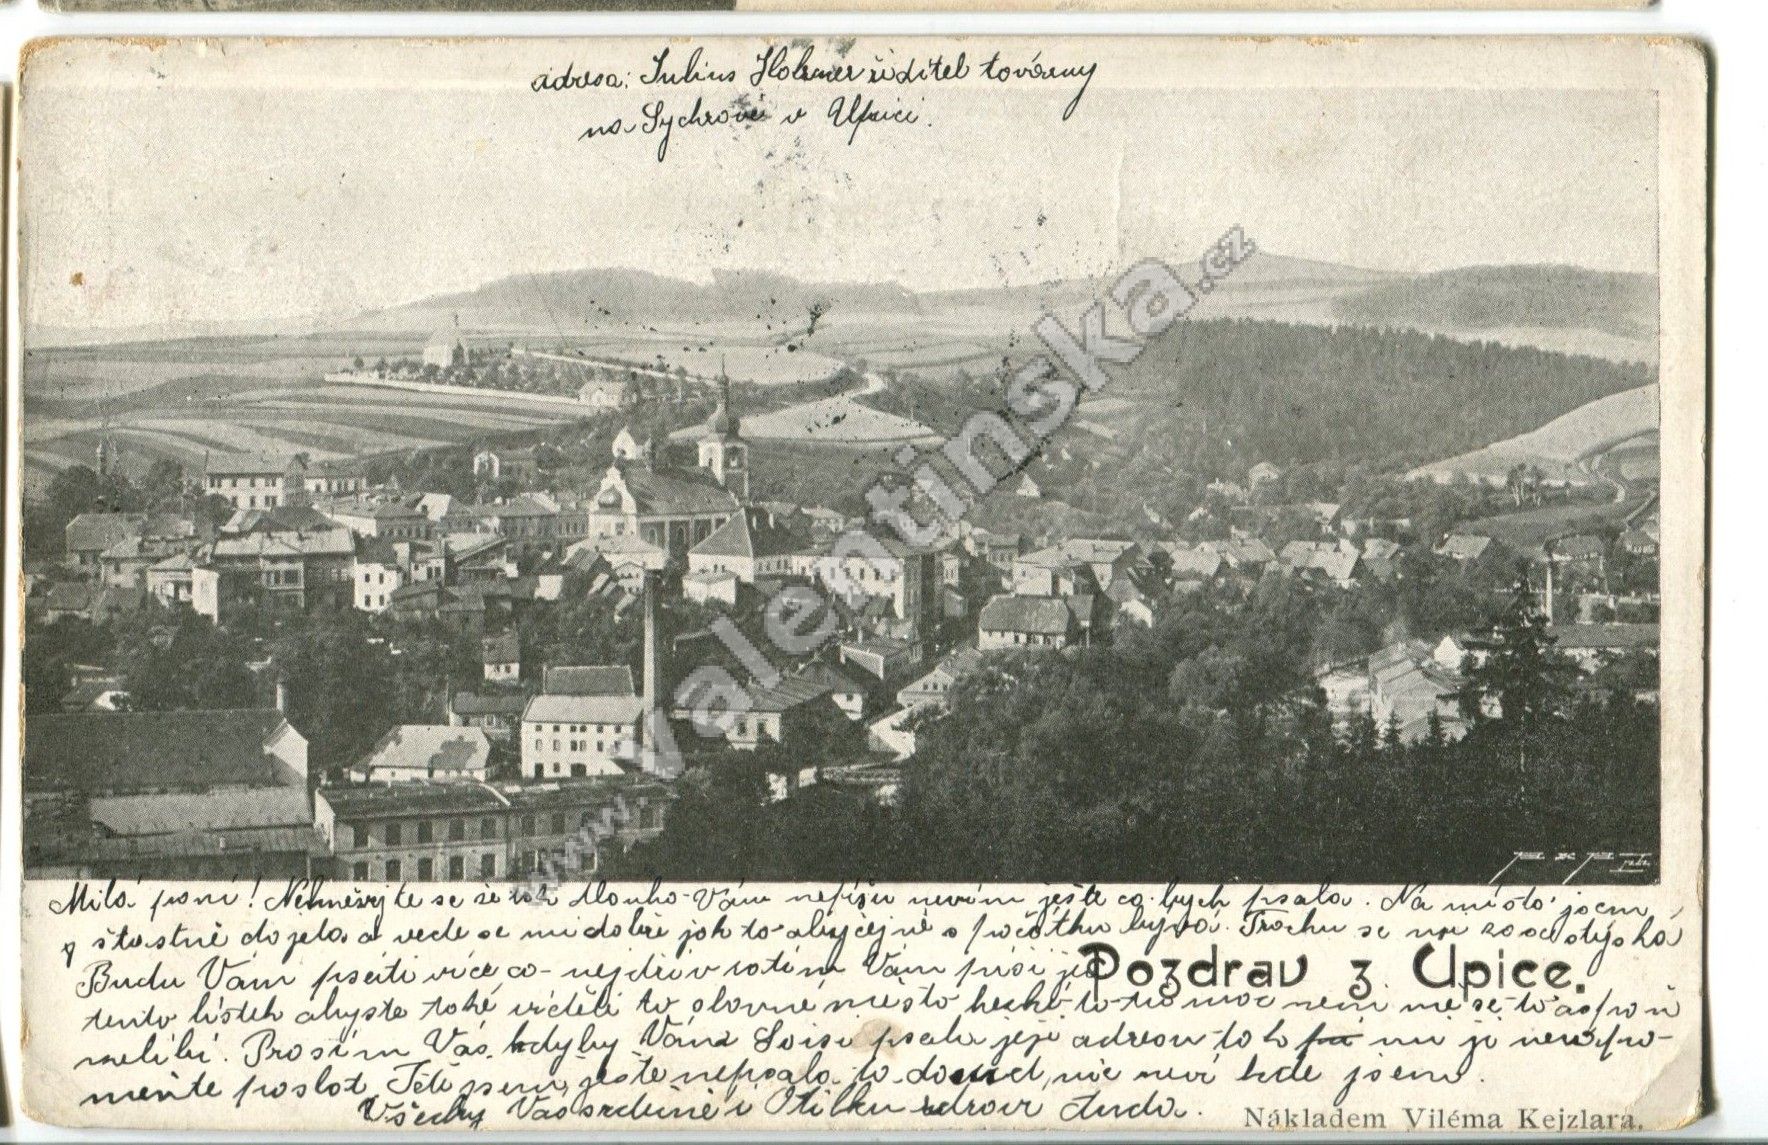 adresa: Julius Holzner ředitel továrny
na Sychrově v Upici.
www.valentinska.cz
Milá paní! Nehněvejte se že tak dlouho Vám nepíšu nevím ještě co bych psala. Na místo jsem
šťastně dojela a vede se mi dobře jak to obyčejně s počátku bývá. Trochu se mi zasestýská
Budu Vám psáti více co nejdřív zatím Vám píši jen
Pozdrav z Upice.
tento lístek abyste také viděli to slavné město hezké to tu moc není mě se to aspoň
nelíbí. Prosím Vás kdyby Vám Loisi psala její adresu tak mi ji nezapo-
meňte poslat Tetě jsem ještě nepsala to dosud nic neví kde jsem.
Všechny Vás srdečně i Otilku zdraví Anda.
Nákladem Viléma Kejzlara.